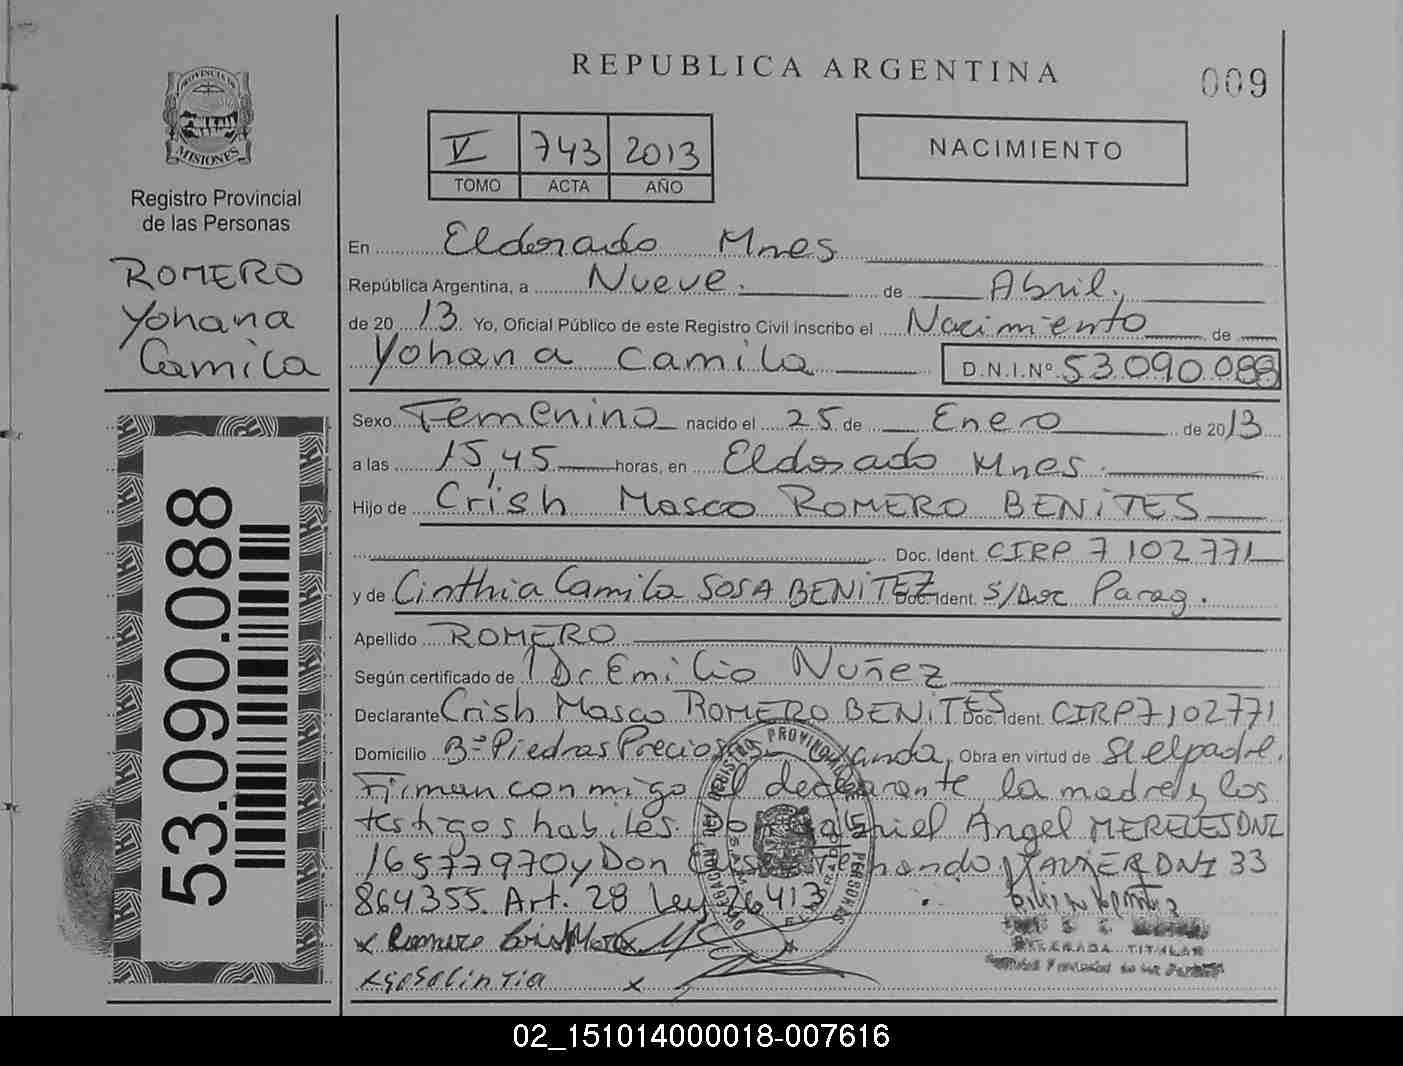 REPUBLICA ARGENTINA
009
PROVINCIA DE
MISIONES
Registro Provincial
de las Personas
ROMERO
Yohana
Camila
53.090.088
V 743 2013
TOMO ACTA AÑO
NACIMIENTO
En Eldorado Mnes
República Argentina, a Nueve de Abril,
de 20 13 Yo, Oficial Público de este Registro Civil inscribo el Nacimiento de
Yohana Camila D.N.I.Nº 53.090.088
Sexo Femenino nacido el 25 de Enero de 2013
a las 15,45 horas, en Eldorado Mnes.
Hijo de Crish Masco ROMERO BENITES
Doc. Ident. CIRP 7102771
y de Cinthia Camila SOSA BENITEZ Doc. Ident. S/Doc Parag.
Apellido ROMERO
Según certificado de Dr Emilio Nuñez
Declarante Crish Masco ROMERO BENITES Doc. Ident. CIRP7102771
Domicilio Bº Piedras Preciosas Obra en virtud de S/el padre.
Firman conmigo el declarante, la madre y los
testigos habiles. Don Gabriel Angel MERELES DNI
16577970 y Don Fernando JAVIER DNI 33
864355. Art. 28 Ley 26413
x Romero
x
x
DELEGADA TITULAR
02_151014000018-007616